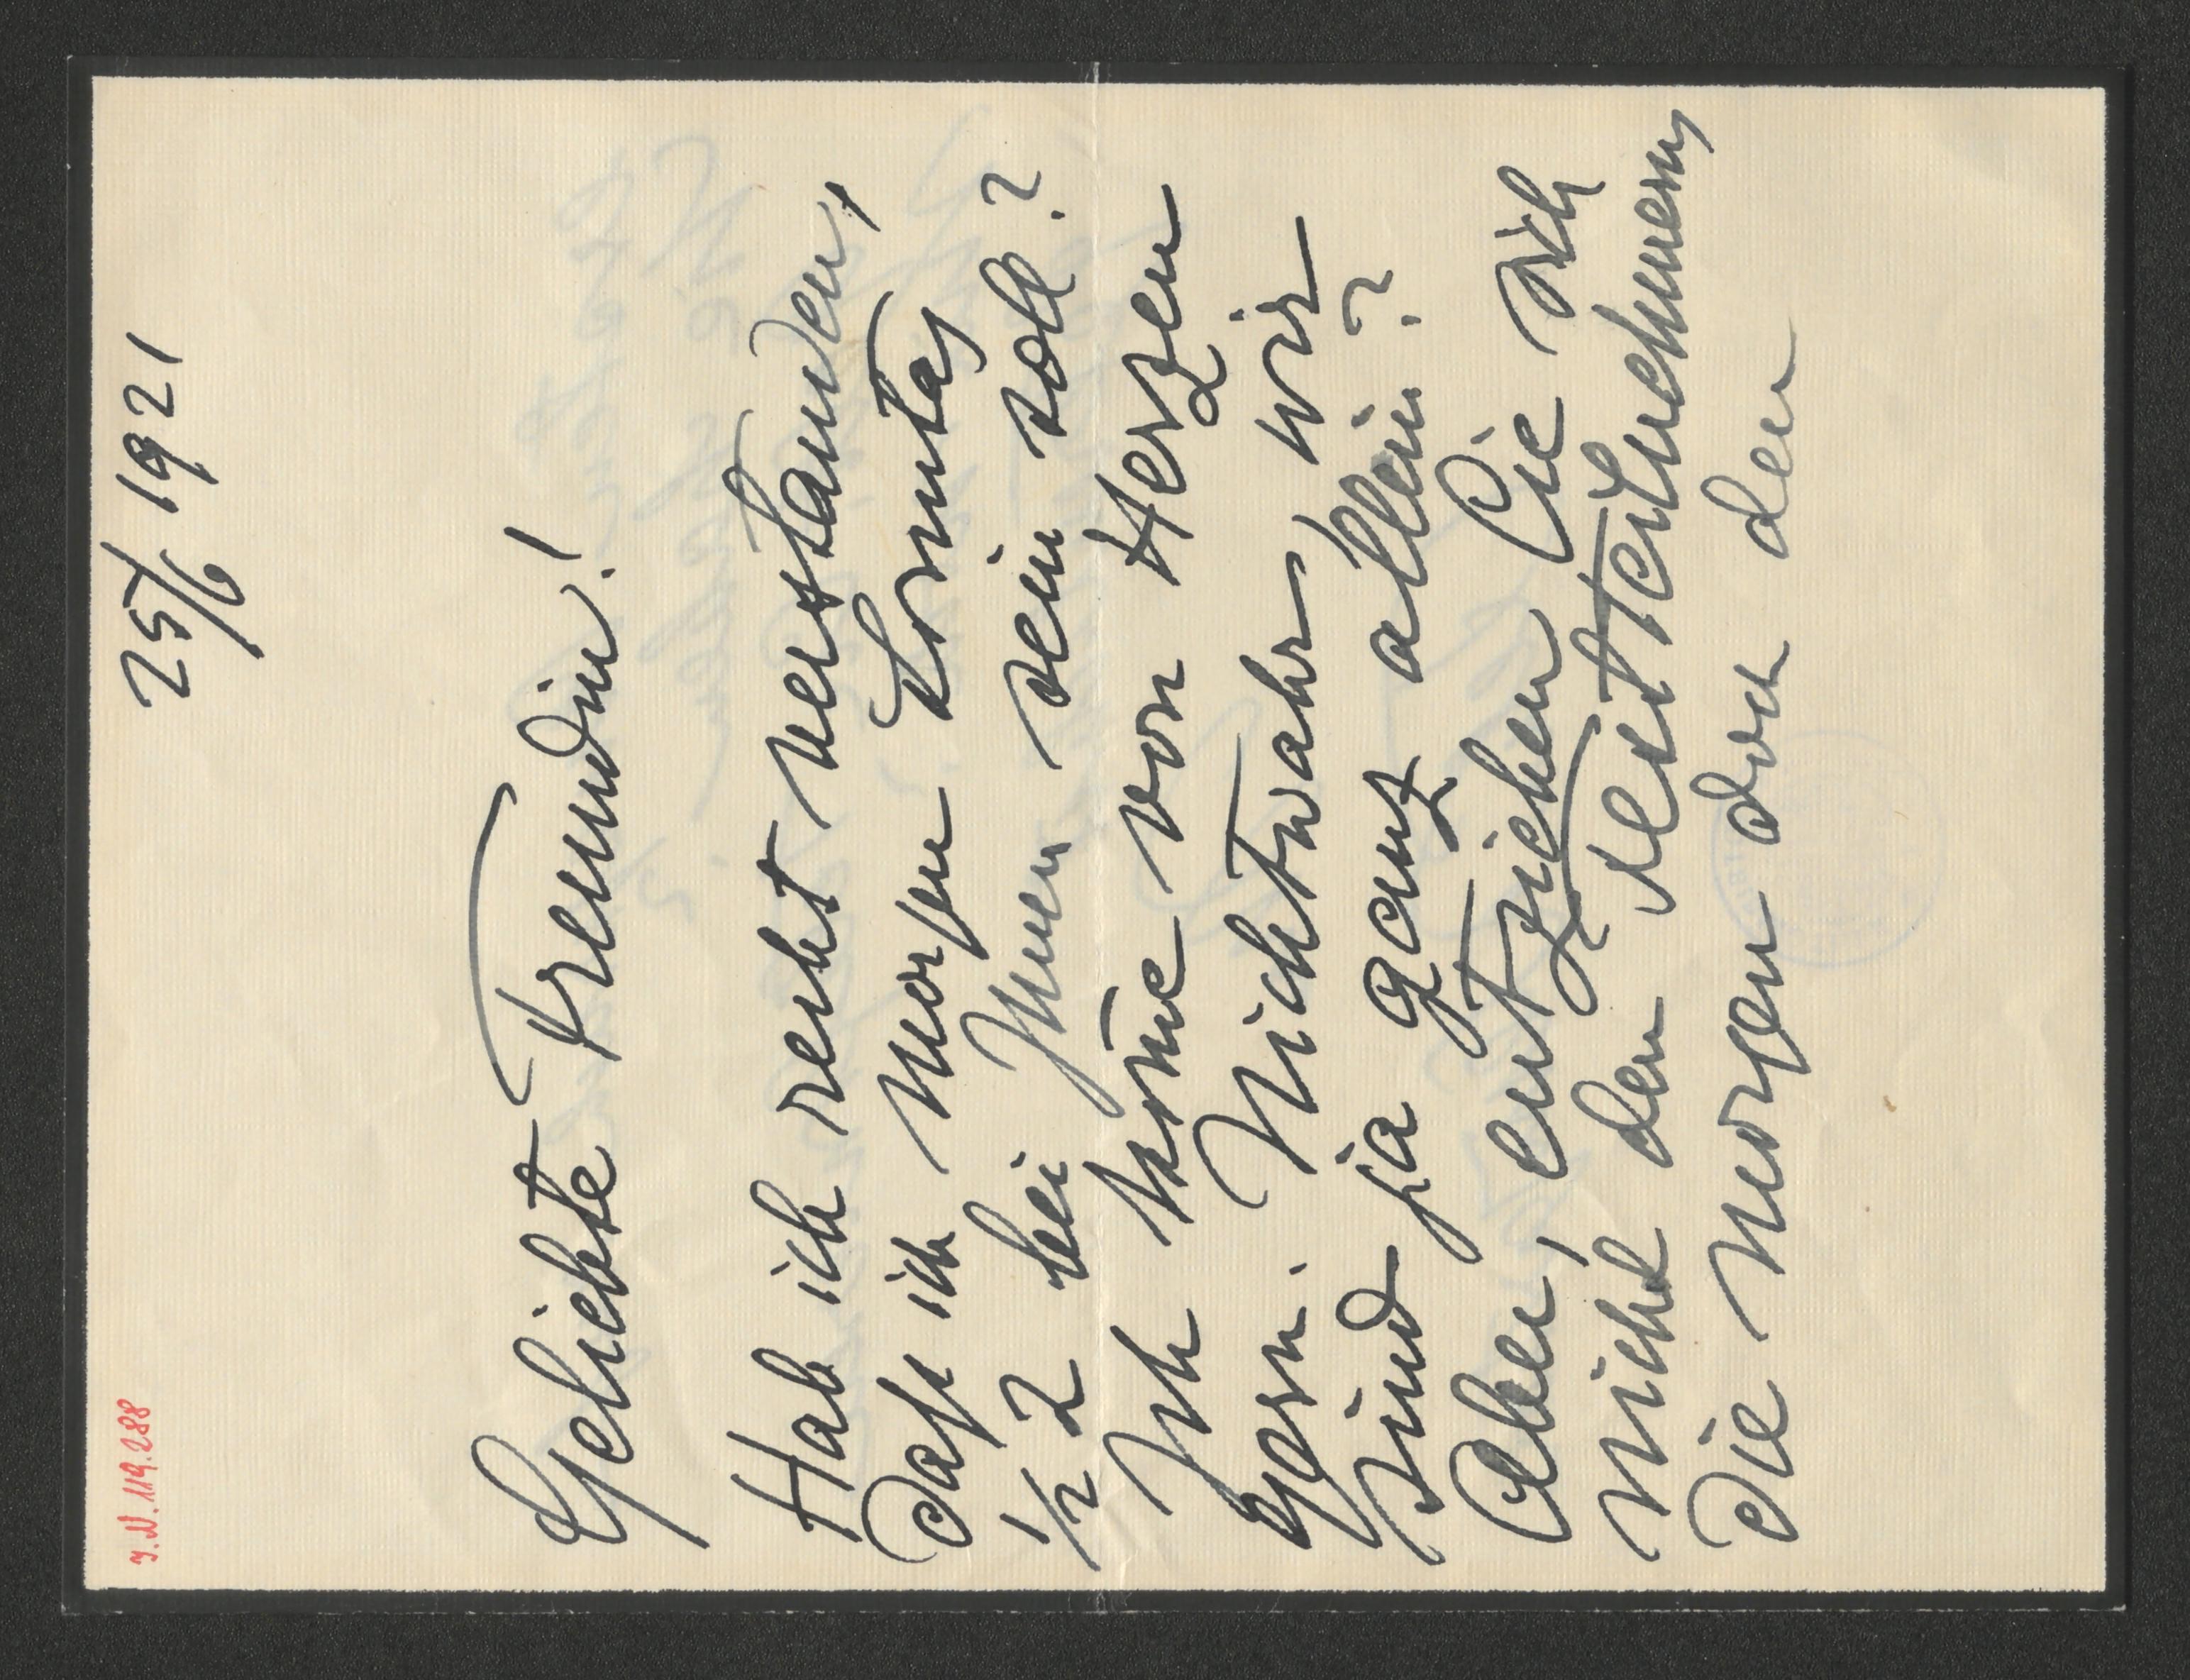 I. N. 119.288
25/6 1921
Geliebte Freundin!
Hab ich recht verstanden,
daß ich morgen Sonntag
1/2 2 bei Ihnen sein soll?
Ich kome von Herzen
gern. Nicht wahr, wir
sind ja ganz allein?
Aber, entziehen Sie sich
nicht den
die morgen doch den